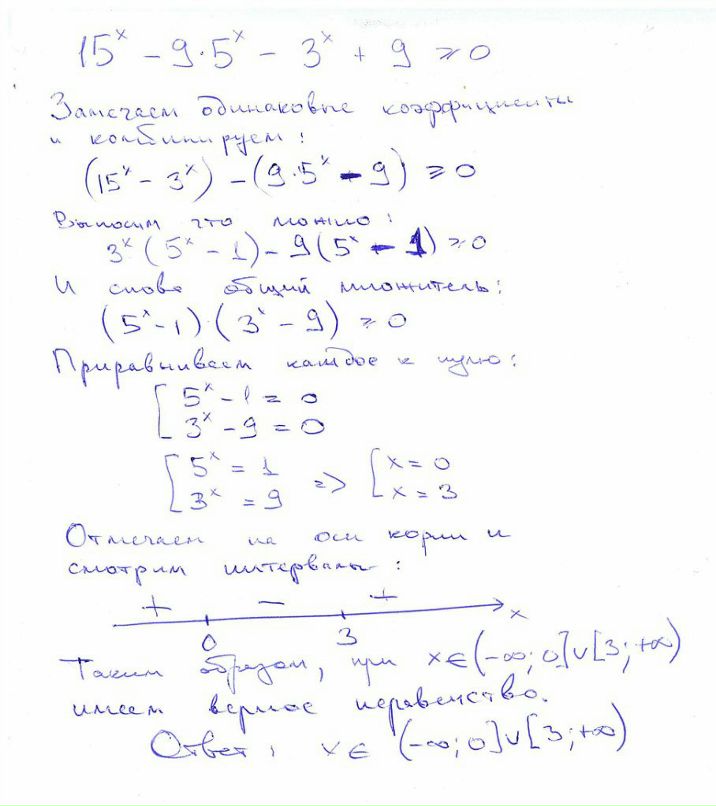 15ˣ - 9·5ˣ - 3ˣ + 9 ≥ 0
Замечаем одинаковые коэффициенты
и комбинируем:
(15ˣ - 3ˣ) - (9·5ˣ - 9) ≥ 0
Выносим что можно:
3ˣ(5ˣ - 1) - 9(5ˣ - 1) ≥ 0
И снова общий множитель:
(5ˣ - 1)·(3ˣ - 9) ≥ 0
Приравниваем каждое к нулю:
[ 5ˣ - 1 = 0
3ˣ - 9 = 0
[ 5ˣ = 1 => [ x = 0
3ˣ = 9 x = 3
Отмечаем на оси корни и
смотрим интервалы:
+ - +
0 3 x
Таким образом, при x ∈ (-∞; 0] ∪ [3; +∞)
имеем верное неравенство.
Ответ: x ∈ (-∞; 0] ∪ [3; +∞)